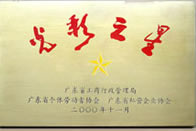 光彩之星
广东省工商行政管理局
广东省个体劳动者协会 广东省私营企业协会
二〇〇〇年十一月